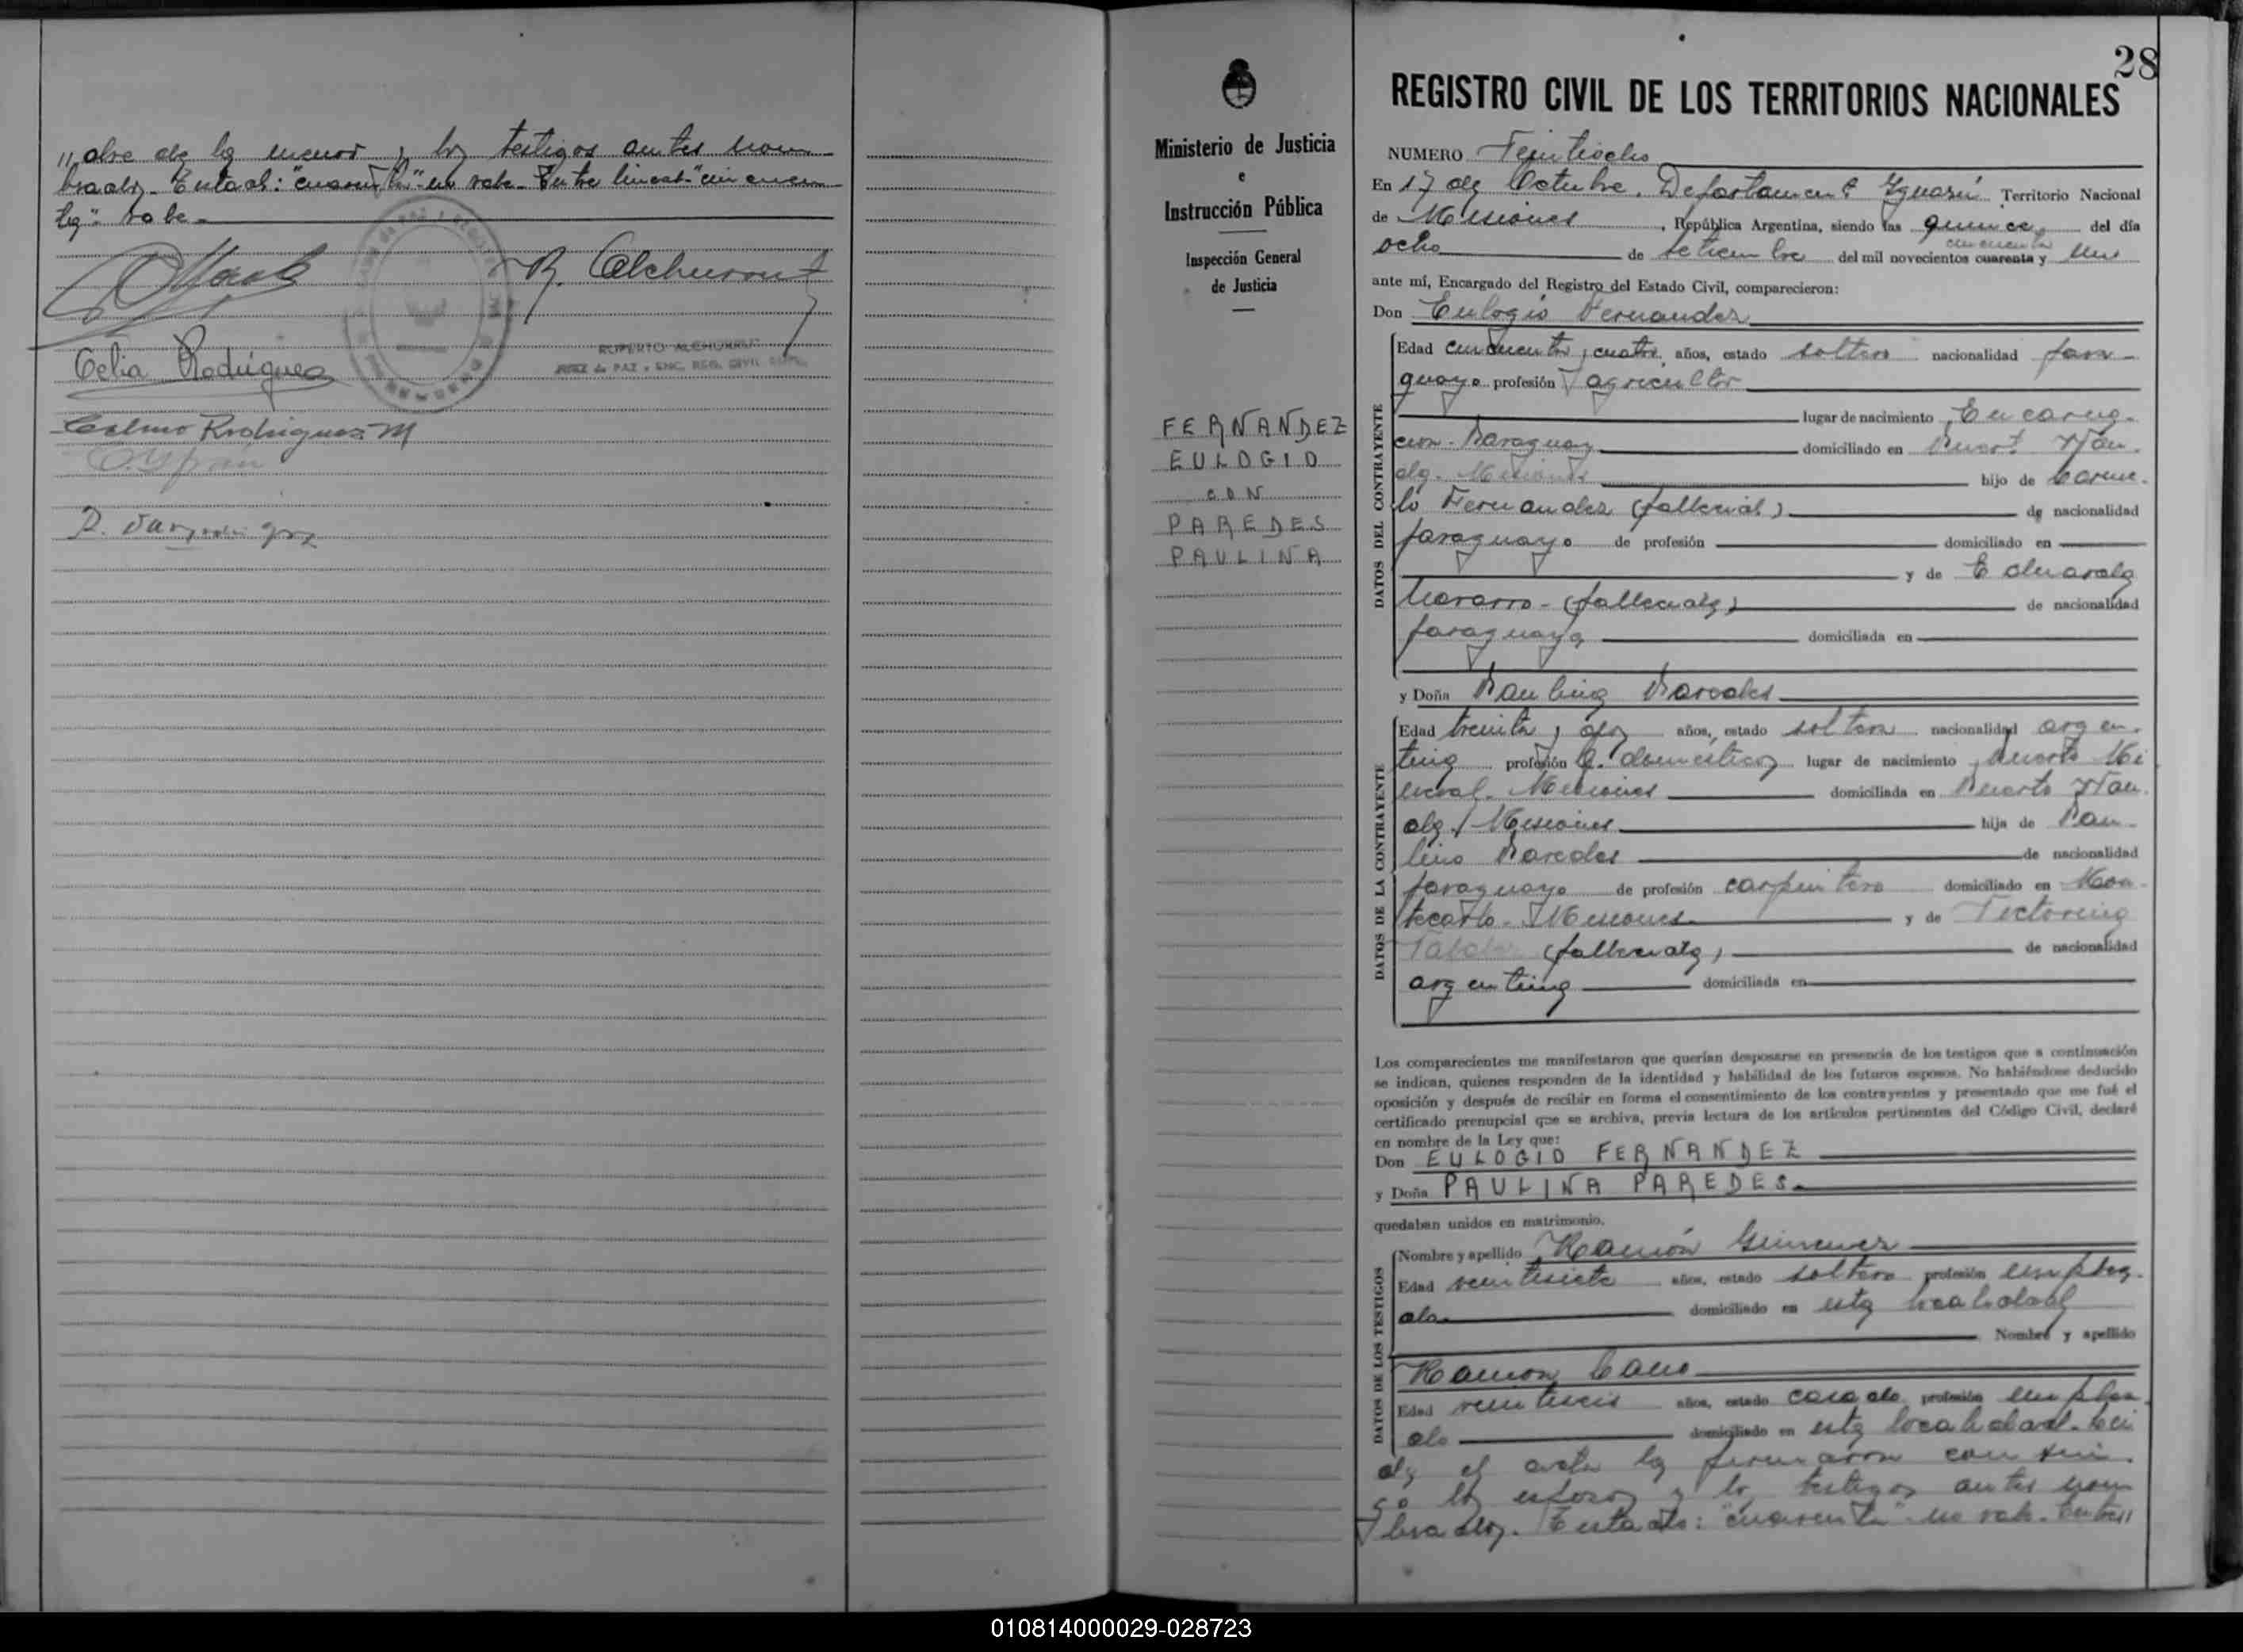 //dre de la menor y los testigos antes nom
brados. Testado: "cuarenta" no vale. Entre lineas "cincuen
ta" vale.
R. Alchurrut
RUPERTO ALCHURRUT
JUEZ de PAZ y ENC. REG. CIVIL
Celia Rodríguez
Celmo Rodriguez M
Ministerio de Justicia
e
Instrucción Pública
Inspección General
de Justicia
FERNANDEZ
EULOGIO
CON
PAREDES
PAULINA
28
REGISTRO CIVIL DE LOS TERRITORIOS NACIONALES
NUMERO Veintiocho
En 17 de Octubre. Departament Iguazú Territorio Nacional
de Misiones, República Argentina, siendo las quince del día
cincuenta
ocho de setiembre del mil novecientos cuarenta y uno
ante mí, Encargado del Registro del Estado Civil, comparecieron:
Don Eulogio Fernandez
DATOS DEL CONTRAYENTE
Edad cincuenta y cuatro años, estado soltero nacionalidad para-
guayo profesión agricultor
lugar de nacimiento Encarna-
cion. Paraguay domiciliado en Puerto Wan-
da. Misiones hijo de Carme-
lo Fernandez (fallecido) de nacionalidad
paraguayo de profesión domiciliado en
y de Eduarda
Navarro - (fallecida) de nacionalidad
paraguaya domiciliada en
y Doña Paulina Paredes
DATOS DE LA CONTRAYENTE
Edad treinta y dos años, estado soltera nacionalidad argen-
tina profesión q. domésticos lugar de nacimiento Puerto Mi
neral. Misiones domiciliada en Puerto Wan-
da. Misiones hija de Pau-
lino Paredes de nacionalidad
paraguayo de profesión carpintero domiciliado en Mon-
tecarlo. Misiones y de Victorina
(fallecida) de nacionalidad
argentina domiciliada en
Los comparecientes me manifestaron que querían desposarse en presencia de los testigos que a continuación
se indican, quienes responden de la identidad y habilidad de los futuros esposos. No habiéndose deducido
oposición y después de recibir en forma el consentimiento de los contrayentes y presentado que me fué el
certificado prenupcial que se archiva, previa lectura de los artículos pertinentes del Código Civil, declaré
en nombre de la Ley que:
Don EULOGIO FERNANDEZ
y Doña PAULINA PAREDES.
quedaban unidos en matrimonio.
DATOS DE LOS TESTIGOS
Nombre y apellido Ramón Gimenez
Edad veintisiete años, estado soltero profesión emplea-
do. domiciliado en esta localidad
Nombre y apellido
Ramon Cano
Edad veintiseis años, estado casado profesión emplea-
do domiciliado en esta localidad. Lei
da el acta la firmaron conmi-
go los esposos y los testigos antes nom
brados. Testado: "cuarenta" no vale. Entre//
010814000029-028723